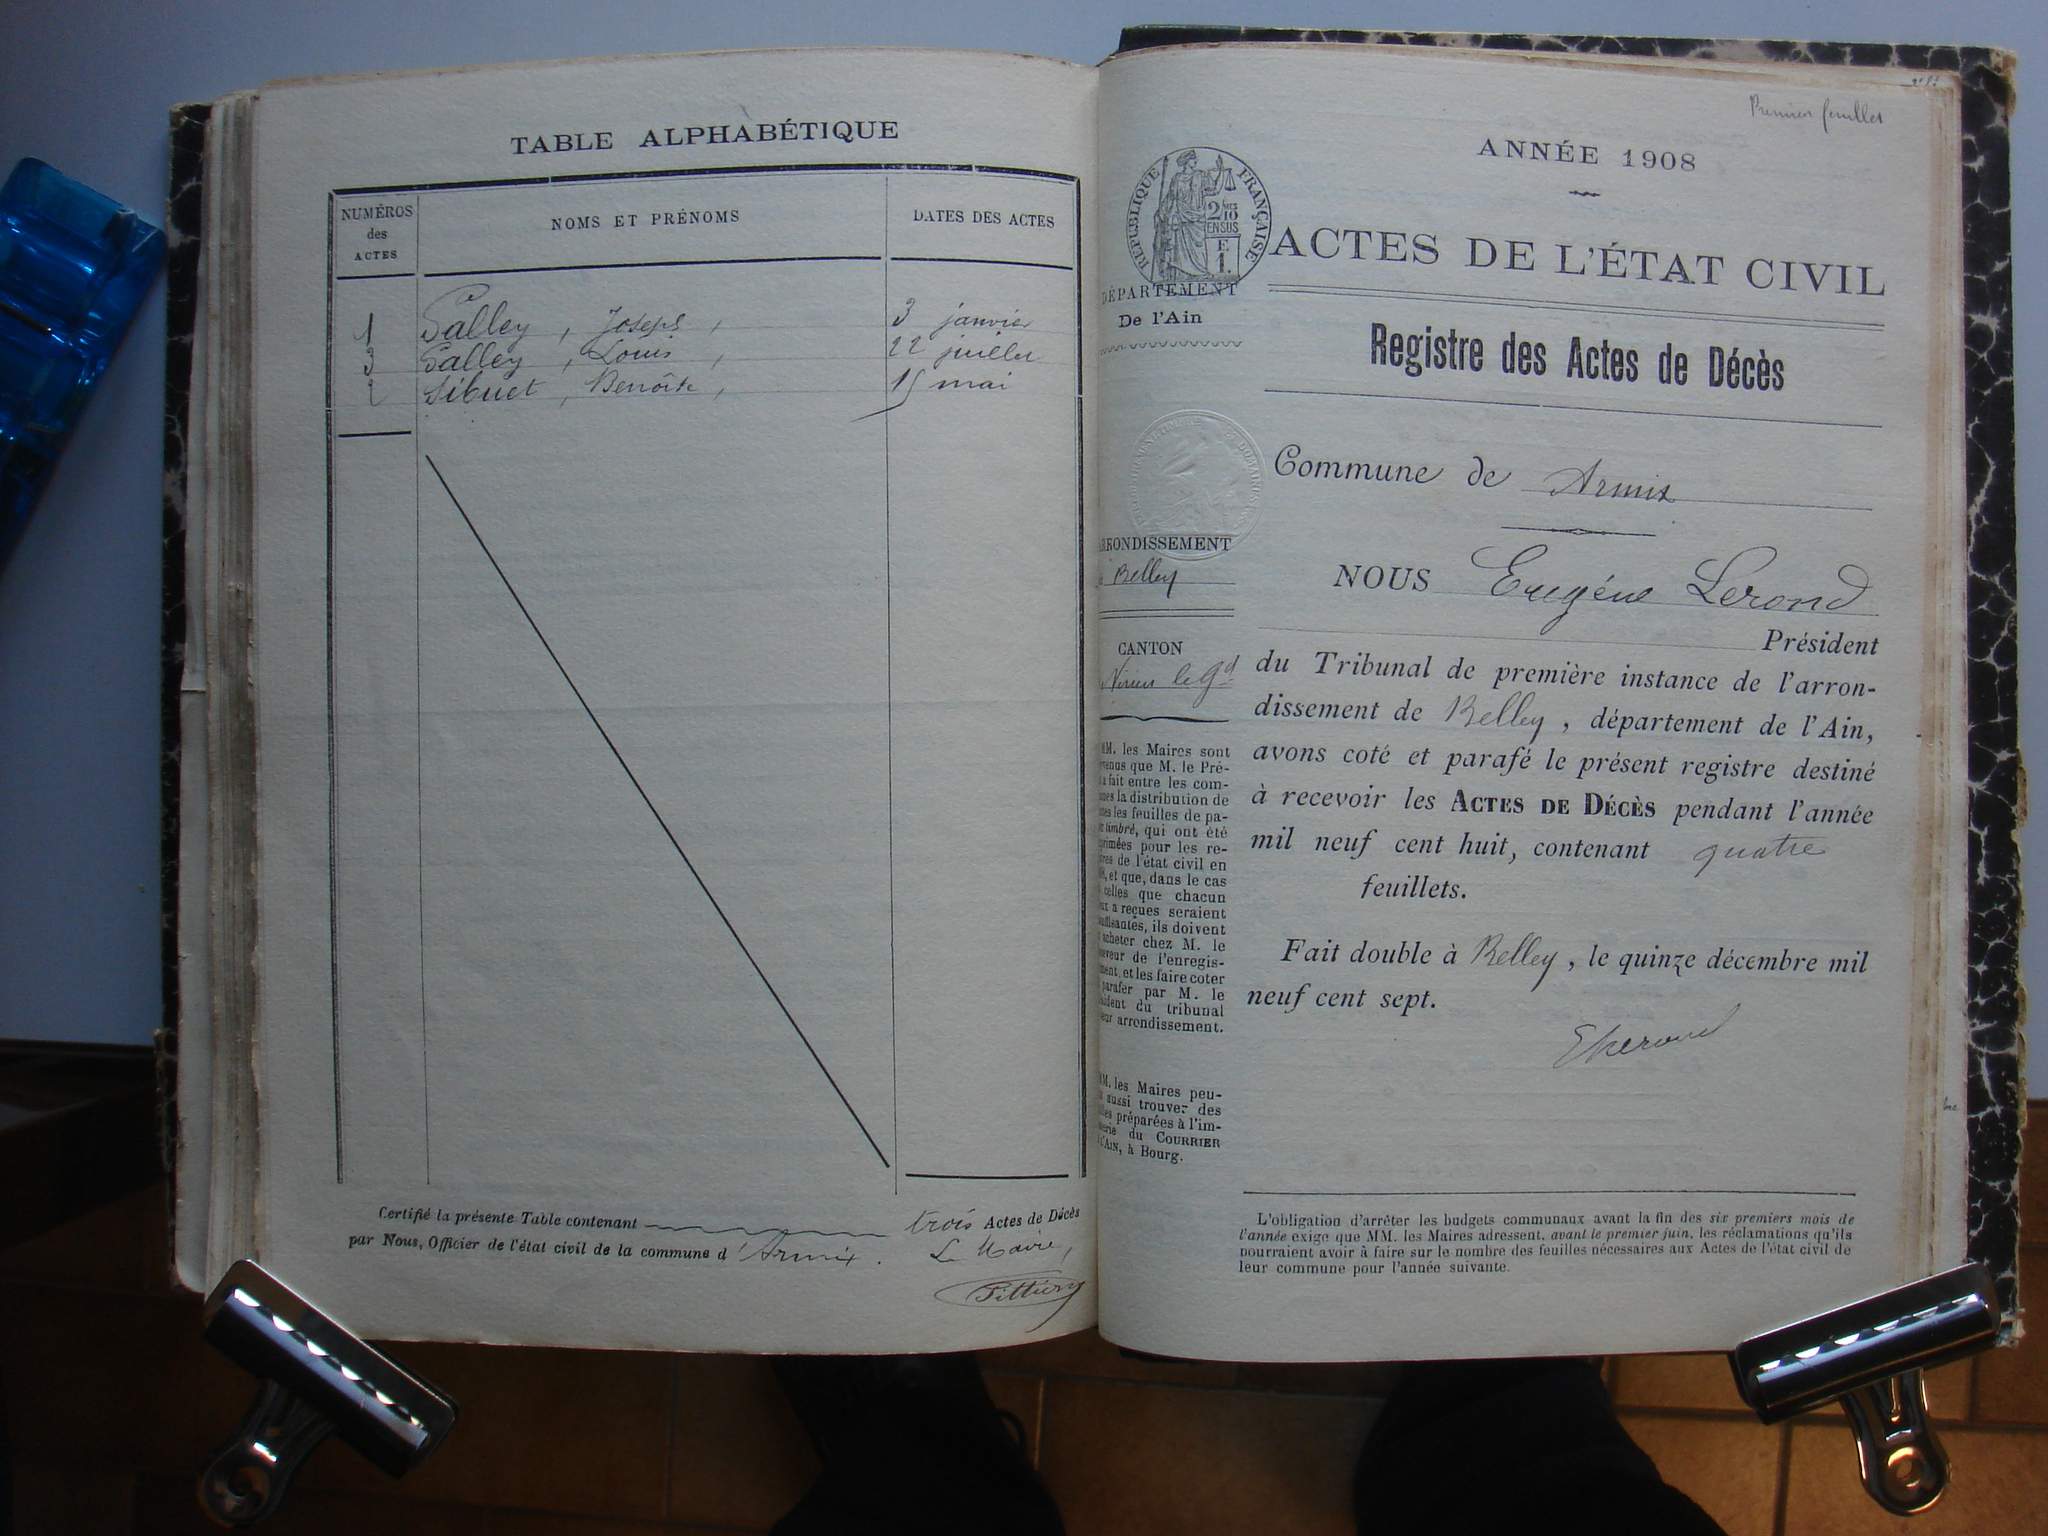 TABLE ALPHABÉTIQUE
NUMÉROS
des
ACTES
NOMS ET PRÉNOMS
DATES DES ACTES
1 Salley, Joseph, 3 janvier
3 Salley, Louis, 22 juillet
2 Sibuet, Benoîte, 15 mai
Certifié la présente Table contenant trois Actes de Décès
par Nous, Officier de l'état civil de la commune d'Armix.
Le Maire,
Premier feuillet
ANNÉE 1908
RÉPUBLIQUE FRANÇAISE
2/10
EN SUS
F
1.
ACTES DE L'ÉTAT CIVIL
DÉPARTEMENT
De l'Ain
Registre des Actes de Décès
Commune de Armix
ARRONDISSEMENT
Belley
NOUS Eugène Lerond
Président
CANTON
Virieu le Gd
du Tribunal de première instance de l'arron-
dissement de Belley, département de l'Ain,
avons coté et parafé le présent registre destiné
à recevoir les ACTES DE DÉCÈS pendant l'année
mil neuf cent huit, contenant quatre
feuillets.
Fait double à Belley, le quinze décembre mil
neuf cent sept.
MM. les Maires sont
venus que M. le Pré-
a fait entre les com-
la distribution de
les feuilles de pa-
timbré, qui ont été
primées pour les re-
de l'état civil en
, et que, dans le cas
celles que chacun
a reçues seraient
ils doivent
acheter chez M. le
de l'enregis-
et les faire coter
parafer par M. le
du tribunal
arrondissement.
MM. les Maires peu-
aussi trouver des
préparées à l'im-
du COURRIER
L'AIN, à Bourg.
L'obligation d'arrêter les budgets communaux avant la fin des six premiers mois de
l'année exige que MM. les Maires adressent, avant le premier juin, les réclamations qu'ils
pourraient avoir à faire sur le nombre des feuilles nécessaires aux Actes de l'état civil de
leur commune pour l'année suivante.